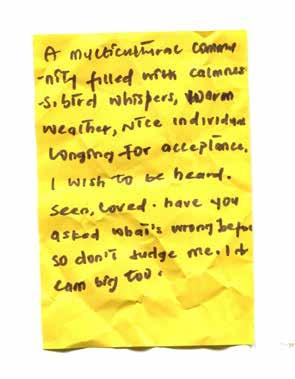 A multicultural commu
-nity filled with calmnes
-s, bird whispers, warm
weather, nice individual
longing for acceptance.
I wish to be heard.
seen, loved. have you
asked what's wrong before
so don't judge me. I
can big too.